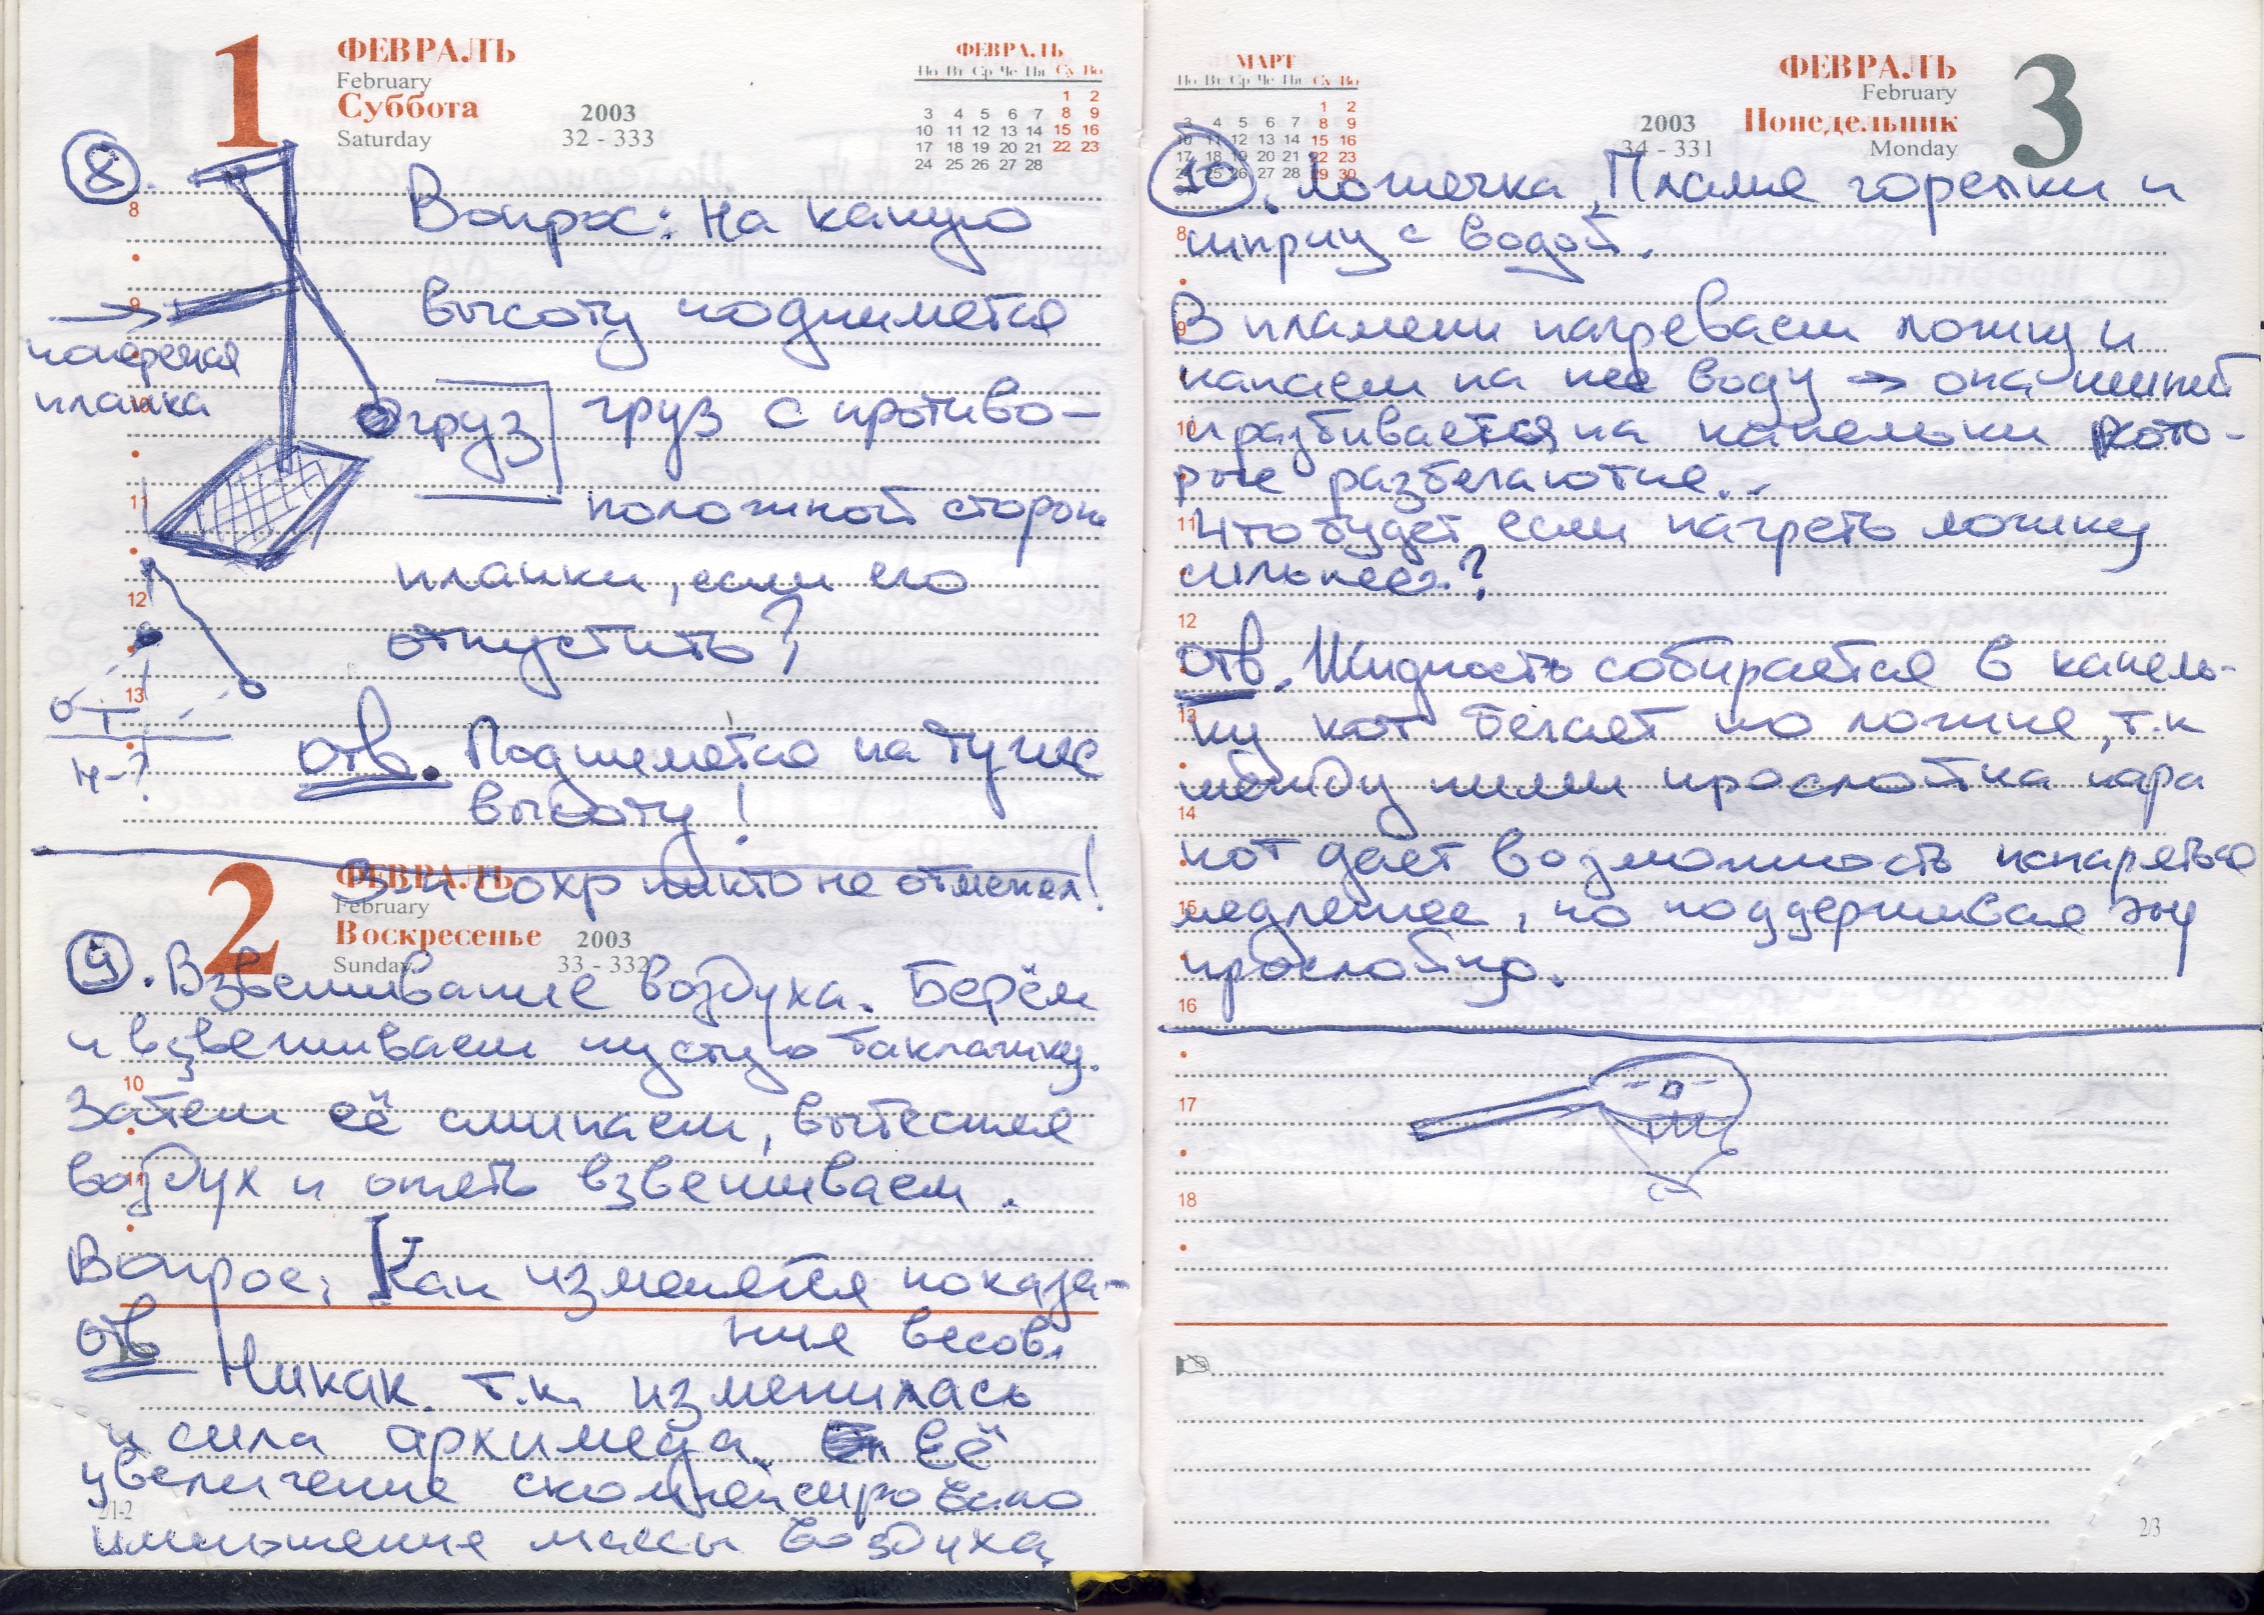 1
ФЕВРАЛЬ
February
Суббота
Saturday
2003
32 - 333
ФЕВРАЛЬ
По Вт Ср Че Пя Су Во
1 2
3 4 5 6 7 8 9
10 11 12 13 14 15 16
17 18 19 20 21 22 23
24 25 26 27 28
8.
Вопрос: На какую
высоту поднимется
поперечая
планка
груз
груз с противо-
положной сторон
планки, если его
отпустить?
H-?
Отв. Подниметса на ту же
высоту!
З-н сохр никто не отменял!
8
9
10
11
12
13
2
ФЕВРАЛЬ
February
Воскресенье
Sunday
2003
33 - 332
9. Взвешивание воздуха. Берём
и взвешиваем пустую баклашку.
Затем её сминаем, вытесняя
воздух и опять взвешиваем.
Вопрос: Как изменятся показа-
ния весов.
Отв
Никак. т.к. изменилась
и сила архимеда. Её
увеличение скомпенсировано
уменьшение массы воздуха
10
11
2/1-2
МАРТ
По Вт Ср Че Пя Су Во
1 2
3 4 5 6 7 8 9
10 11 12 13 14 15 16
17 18 19 20 21 22 23
24 25 26 27 28 29 30
2003
34 - 331
ФЕВРАЛЬ
February
Понедельник
Monday
3
10. Ложечка, Пламя горелки и
шприц с водой.
В пламени нагреваем ложку и
капаем на нее воду → она шипит
и разбивается на капельки кото-
рые разбегаются...
Что будет если нагреть ложку
сильнее?
Отв. Жидкость собирается в капель-
ку кот бегает по ложке, т.к
между ними прослойка пара
кот дает возможность испаряться
медленнее, но поддерживая эту
прослойку.
8
9
10
11
12
13
14
15
16
17
18
2/3